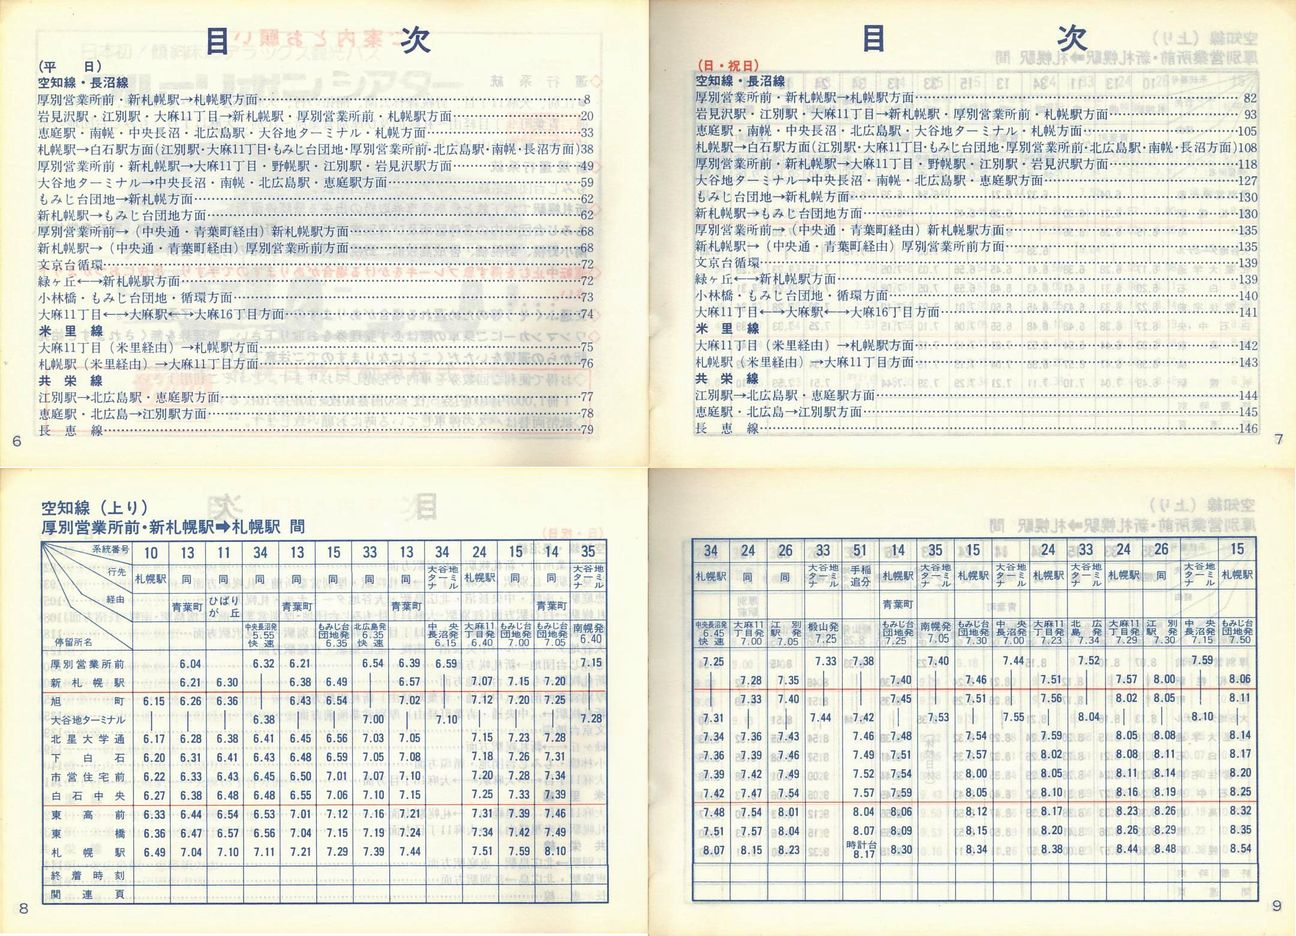 目　次
(平　日)
空知線・長沼線
厚別営業所前・新札幌駅→札幌駅方面……8
岩見沢駅・江別駅・大麻11丁目→新札幌駅・厚別営業所前・札幌駅方面……20
恵庭駅・南幌・中央長沼・北広島駅・大谷地ターミナル・札幌方面……33
札幌駅→白石駅方面(江別駅・大麻11丁目・もみじ台団地・厚別営業所前・北広島駅・南幌・長沼方面)38
厚別営業所前・新札幌駅→大麻11丁目・野幌駅・江別駅・岩見沢駅方面……49
大谷地ターミナル→中央長沼・南幌・北広島駅・恵庭駅方面……59
もみじ台団地→新札幌方面……62
新札幌駅→もみじ台団地方面……62
厚別営業所前→(中央通・青葉町経由)新札幌駅方面……68
新札幌駅→(中央通・青葉町経由)厚別営業所前方面……68
文京台循環……72
緑ヶ丘←→新札幌駅方面……72
小林橋・もみじ台団地・循環方面……73
大麻11丁目←→大麻駅←→大麻16丁目方面……74
米里線
大麻11丁目(米里経由)→札幌駅方面……75
札幌駅(米里経由)→大麻11丁目方面……76
共栄線
江別駅→北広島駅・恵庭駅方面……77
恵庭駅・北広島→江別駅方面……78
長恵線……79
6
目　次
(日・祝日)
空知線・長沼線
厚別営業所前・新札幌駅→札幌駅方面……82
岩見沢駅・江別駅・大麻11丁目→新札幌駅・厚別営業所前・札幌駅方面……93
恵庭駅・南幌・中央長沼・北広島駅・大谷地ターミナル・札幌方面……105
札幌駅→白石駅方面(江別駅・大麻11丁目・もみじ台団地・厚別営業所前・北広島駅・南幌・長沼方面)108
厚別営業所前・新札幌駅→大麻11丁目・野幌駅・江別駅・岩見沢駅方面……118
大谷地ターミナル→中央長沼・南幌・北広島駅・恵庭駅方面……127
もみじ台団地→新札幌駅方面……130
新札幌駅→もみじ台団地方面……130
厚別営業所前→(中央通・青葉町経由)新札幌駅方面……135
新札幌駅→(中央通・青葉町経由)厚別営業所前方面……135
文京台循環……139
緑ヶ丘←→新札幌駅方面……139
小林橋・もみじ台団地・循環方面……140
大麻11丁目←→大麻駅←→大麻16丁目方面……141
米里線
大麻11丁目(米里経由)→札幌駅方面……142
札幌駅(米里経由)→大麻11丁目方面……143
共栄線
江別駅→北広島駅・恵庭駅方面……144
恵庭駅・北広島→江別駅方面……145
長恵線……146
7
空知線(上り)
厚別営業所前・新札幌駅➡札幌駅 間
系統番号 10 13 11 34 13 15 33 13 34 24 15 14 35
行先 札幌駅 同 同 同 同 同 同 同 大谷地ターミナル 札幌駅 同 同 大谷地ターミナル
経由 青葉町 ひばりが丘 青葉町 青葉町 青葉町
停留所名 中央長沼発5.55快速 もみじ台団地発6.35 北広島発6.35快速 中央長沼発6.15 大麻11丁目発6.40 もみじ台団地発7.00 もみじ台団地発7.05 南幌発6.40
厚別営業所前 6.04 6.32 6.21 6.54 6.39 6.59 7.15
新札幌駅 6.21 6.30 | 6.38 6.49 | 6.57 | 7.07 7.15 7.20 |
旭町 6.15 6.26 6.36 | 6.43 6.54 | 7.02 | 7.12 7.20 7.25 |
大谷地ターミナル | | | 6.38 | | 7.00 | 7.10 | | | 7.28
北星大学通 6.17 6.28 6.38 6.41 6.45 6.56 7.03 7.05 7.15 7.23 7.28
下白石 6.20 6.31 6.41 6.43 6.48 6.59 7.05 7.08 7.18 7.26 7.31
市営住宅前 6.22 6.33 6.43 6.45 6.50 7.01 7.07 7.10 7.20 7.28 7.34
白石中央 6.27 6.38 6.48 6.48 6.55 7.06 7.10 7.15 7.25 7.33 7.39
東高前 6.33 6.44 6.54 6.53 7.01 7.12 7.16 7.21 7.31 7.39 7.46
東橋 6.36 6.47 6.57 6.56 7.04 7.15 7.19 7.24 7.34 7.42 7.49
札幌駅 6.49 7.04 7.10 7.11 7.21 7.29 7.39 7.44 7.51 7.59 8.10
終着時刻
関連頁
8
34 24 26 33 51 14 35 15 34 24 33 24 26 34 15
札幌駅 同 同 大谷地ターミナル 手稲追分 札幌駅 大谷地ターミナル 札幌駅 大谷地ターミナル 札幌駅 大谷地ターミナル 札幌駅 同 大谷地ターミナル 札幌駅
青葉町
中央長沼発6.45快速 大麻11丁目発7.00 江別駅発7.05 椴山発7.25 もみじ台団地発7.25 南幌発7.05 もみじ台団地発7.30 中央長沼発7.00 大麻11丁目発7.23 北広島発7.34 大麻11丁目発7.29 江別駅発7.30 中央長沼発7.15 もみじ台団地発7.50
7.25 7.33 7.38 7.40 7.44 7.52 7.59
| 7.28 7.35 | | 7.40 | 7.46 | 7.51 | 7.57 8.00 | 8.06
| 7.33 7.40 | | 7.45 | 7.51 | 7.56 | 8.02 8.05 | 8.11
7.31 | | 7.44 7.42 | 7.53 | 7.55 | 8.04 | | 8.10 |
7.34 7.36 7.43 7.46 7.48 7.54 7.59 8.05 8.08 8.14
7.36 7.39 7.46 7.49 7.51 7.57 8.02 8.08 8.11 8.17
7.39 7.42 7.49 7.52 7.54 8.00 8.05 8.11 8.14 8.20
7.42 7.47 7.54 7.57 7.59 8.05 8.10 8.16 8.19 8.25
7.48 7.54 8.01 8.04 8.06 8.12 8.17 8.23 8.26 8.32
7.51 7.57 8.04 8.07 8.09 8.15 8.20 8.26 8.29 8.35
8.07 8.15 8.23 時計台8.17 8.30 8.34 8.38 8.44 8.48 8.54
9